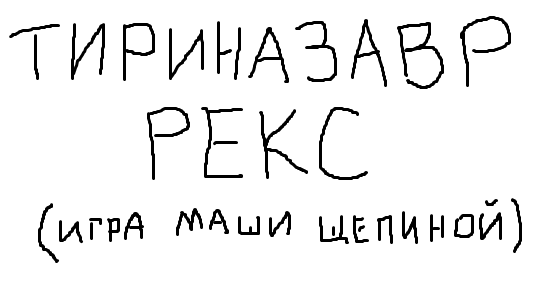 ТИРИНАЗАВР
РЕКС
(ИГРА МАШИ ЩЕПИНОЙ)